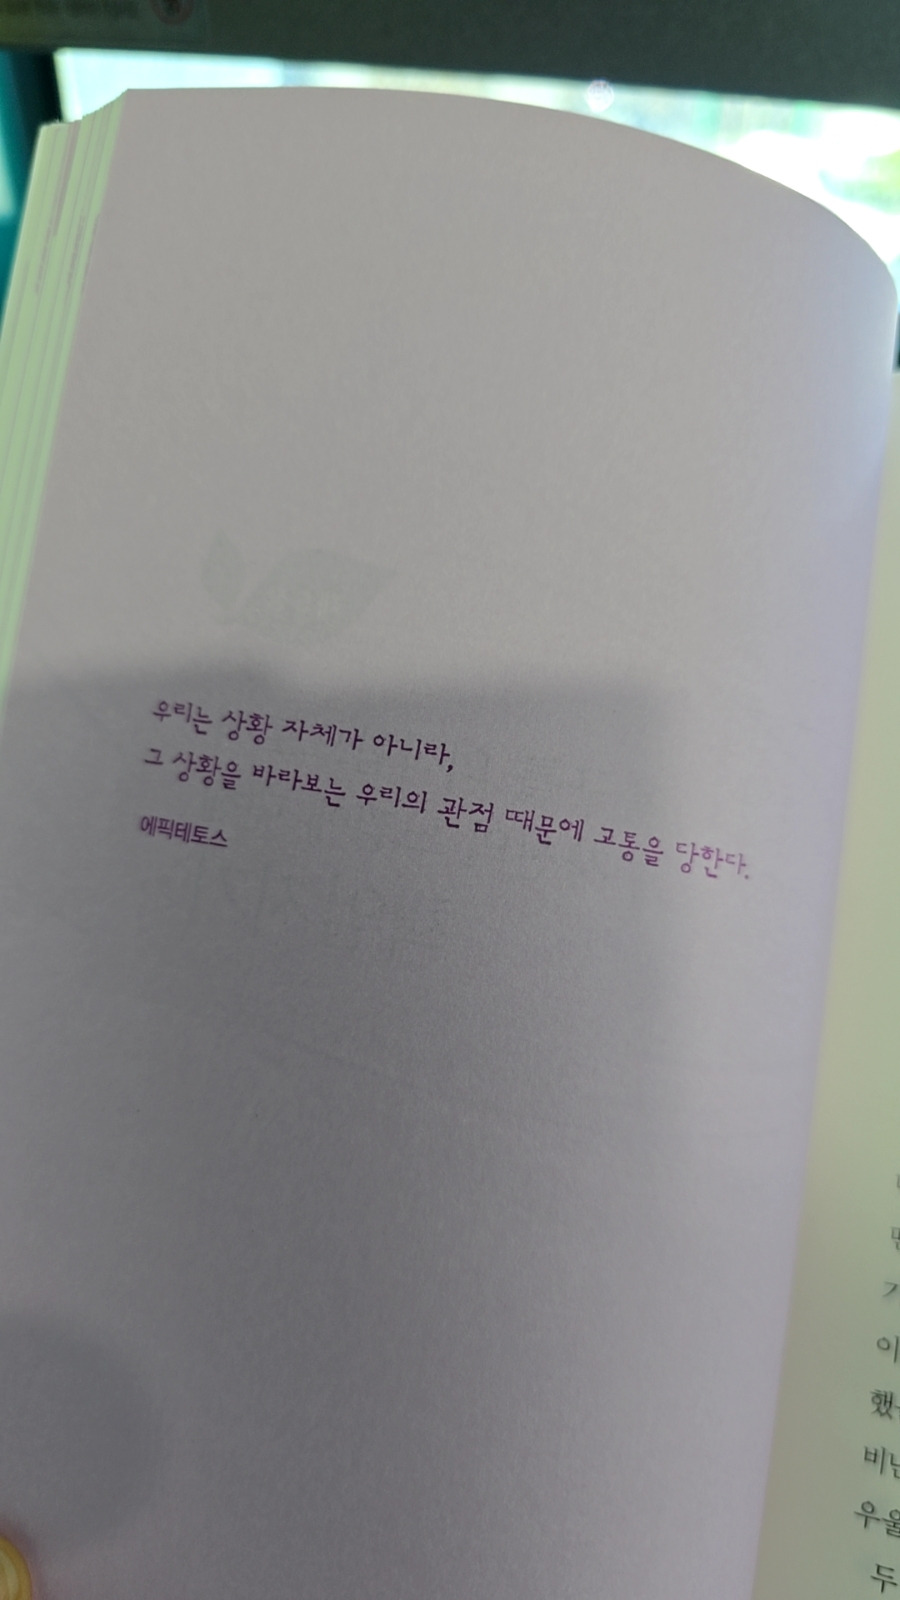 우리는 상황 자체가 아니라,
그 상황을 바라보는 우리의 관점 때문에 고통을 당한다.
에픽테토스
이
했
우울
두